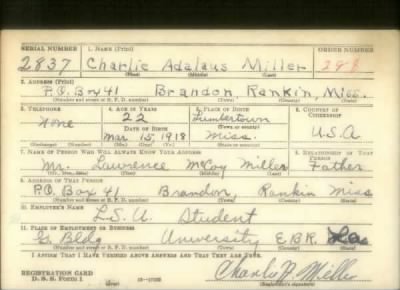 SERIAL NUMBER 1. NAME (Print) ORDER NUMBER
2837 Charlie Adalaus Miller 298
(First) (Middle) (Last)
2. ADDRESS (Print)
P.O. Box 41 Brandon, Rankin, Miss.
(Number and street or R. F. D. number) (Town) (County) (State)
3. TELEPHONE 4. AGE IN YEARS 5. PLACE OF BIRTH 6. COUNTRY OF CITIZENSHIP
None 22 Lumbertown U.S.A
DATE OF BIRTH (Town or county)
Mar 15, 1918 Miss.
(Exchange) (Number) (Mo.) (Day) (Yr.) (State or country)
7. NAME OF PERSON WHO WILL ALWAYS KNOW YOUR ADDRESS 8. RELATIONSHIP OF THAT PERSON
Mr. Lawrence McCoy Miller Father
(Mr., Mrs., Miss) (First) (Middle) (Last)
9. ADDRESS OF THAT PERSON
P.O. Box 41 Brandon, Rankin Miss
(Number and street or R. F. D. number) (Town) (County) (State)
10. EMPLOYER'S NAME
L.S.U. Student
11. PLACE OF EMPLOYMENT OR BUSINESS
G. Bldg University E.B.R. La
(Number and street or R. F. D. number) (Town) (County) (State)
I AFFIRM THAT I HAVE VERIFIED ABOVE ANSWERS AND THAT THEY ARE TRUE.
REGISTRATION CARD
D. S. S. Form 1 Charlie A. Miller
(Registrant's signature)